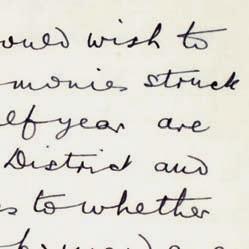 ould wish to
monies struck
elf year are
District and
s to whether